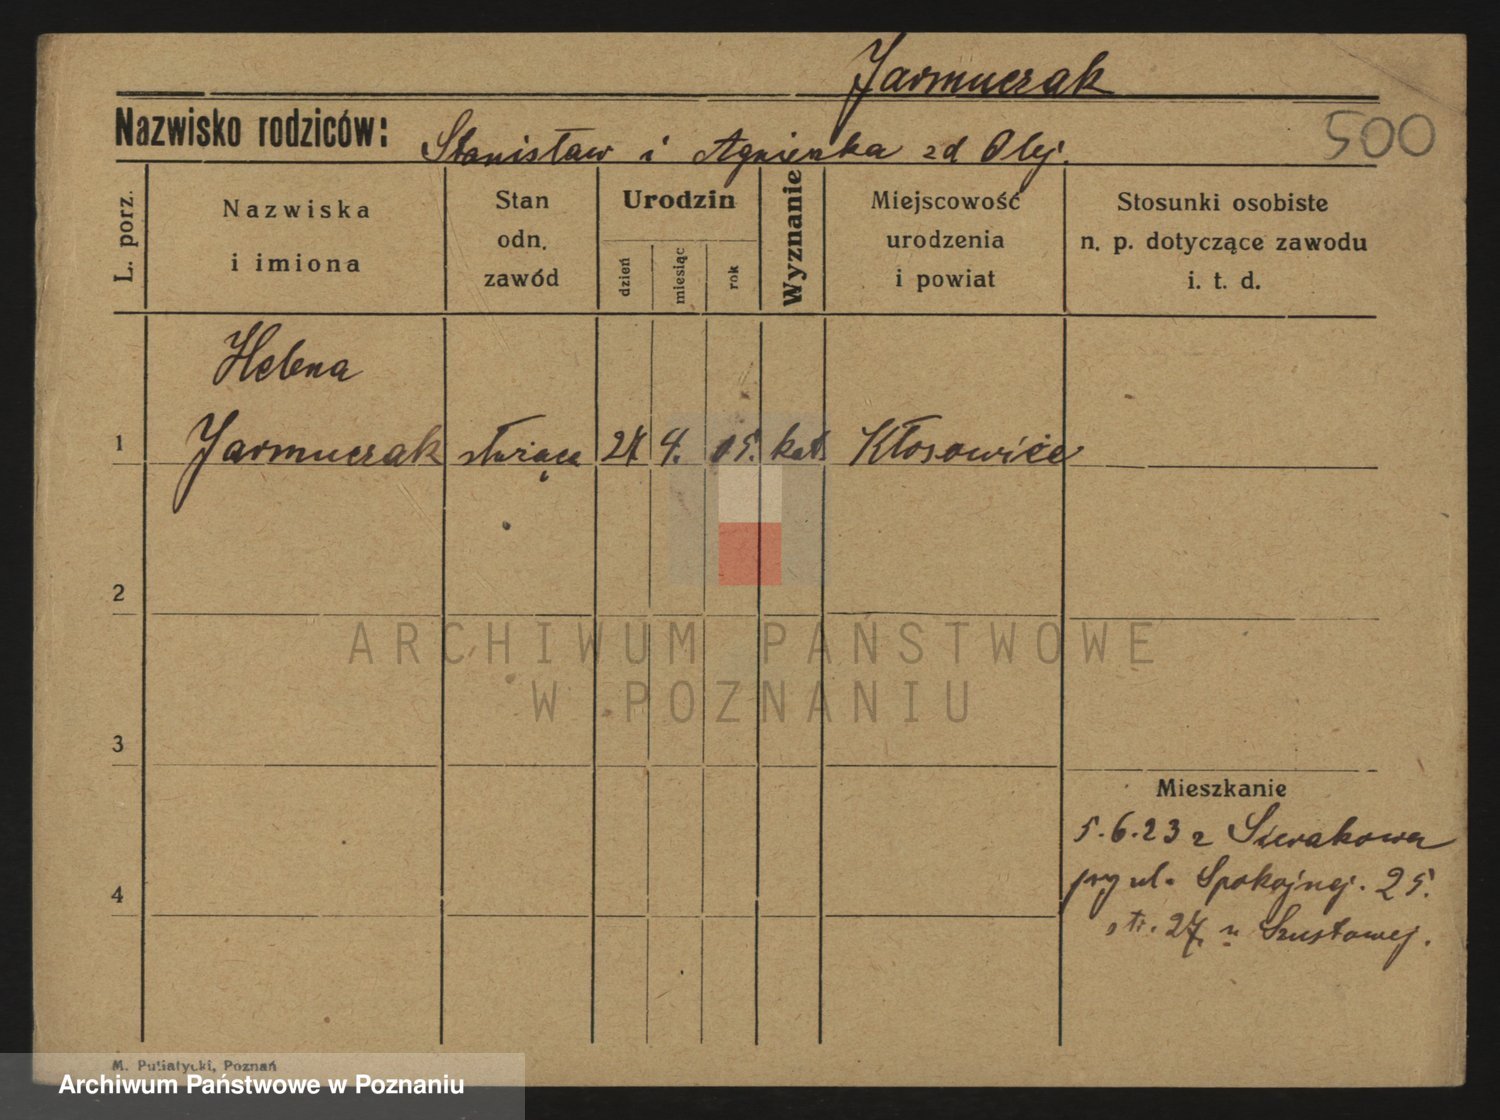 Jarmuczak
Nazwisko rodziców: Stanisław i Agnieszka zd Olej.
500
L. porz.
Nazwiska
i imiona
Stan
odn.
zawód
Urodzin
dzień
miesiąc
rok
Wyznanie
Miejscowość
urodzenia
i powiat
Stosunki osobiste
n. p. dotyczące zawodu
i. t. d.
Helena
1 Jarmuczak służąca 4. 05. kat. Kłosowice
2
ARCHIWUM PAŃSTWOWE
W POZNANIU
3
Mieszkanie
5.6.23 z Sierakowa
przy ul. Spokojnej. 25.
4
27 u Szustowej.
M. Putiatycki, Poznań
Archiwum Państwowe w Poznaniu